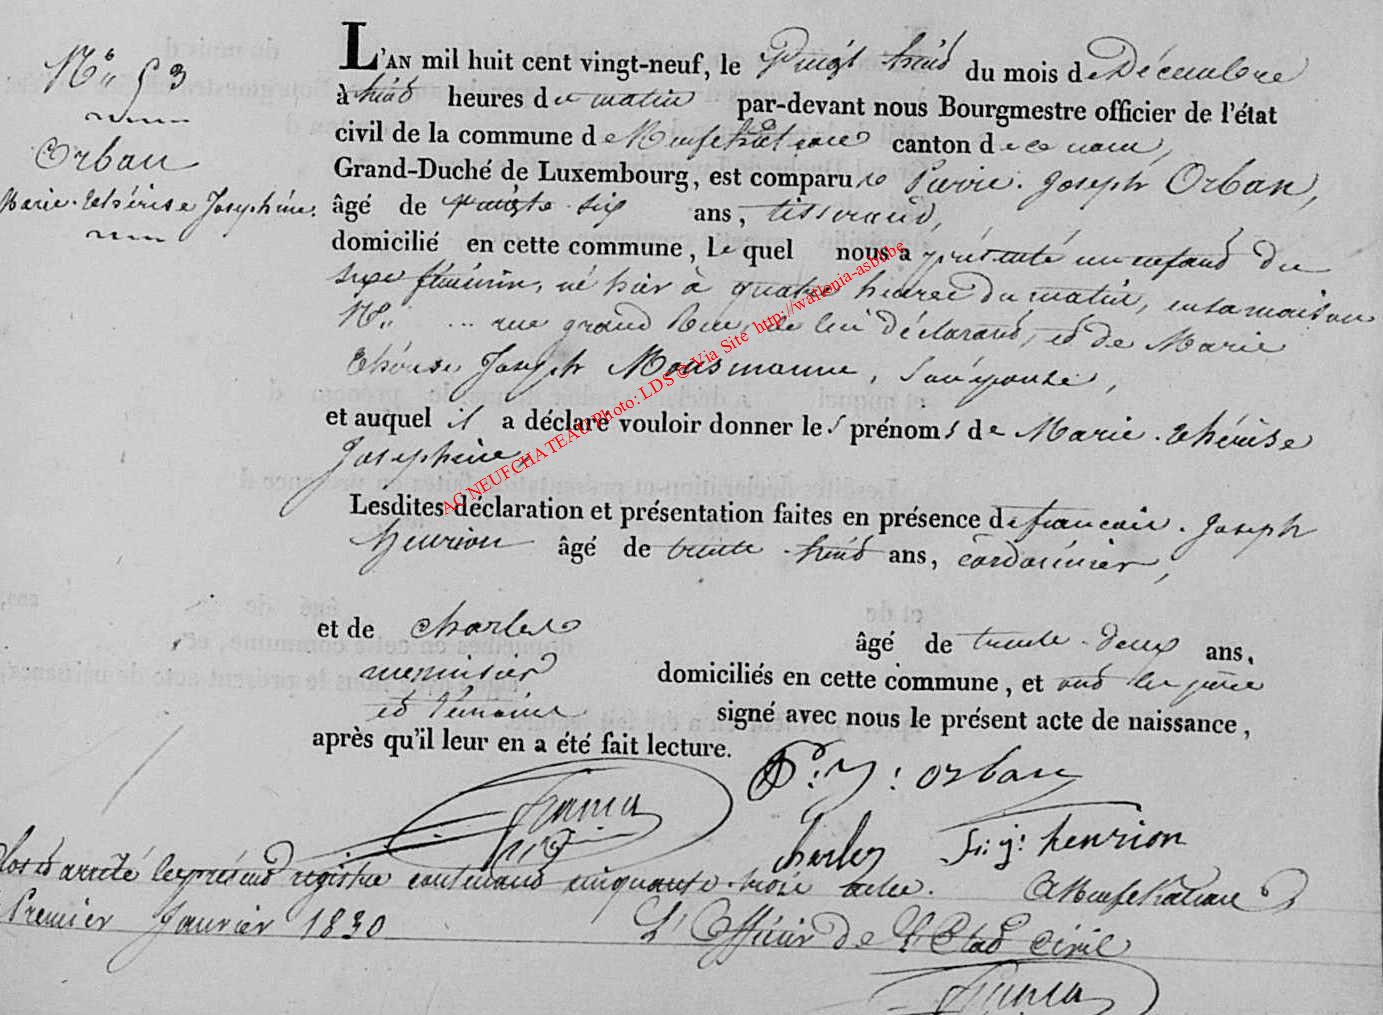 N° 53
Orban
Marie-Thérèse Joséphine.
L'AN mil huit cent vingt-neuf, le Vingt huit du mois de Décembre
à huit heures de matin par-devant nous Bourgmestre officier de l'état
civil de la commune de Neufchateau canton de ce nom,
Grand-Duché de Luxembourg, est comparu Pierre-Joseph Orban,
âgé de six ans, tisserand,
domicilié en cette commune, le quel nous a présenté un enfant du
sexe féminin, né hier à quatre heures du matin, en sa maison
N° ... rue grand Rue, de lui déclarant, et de Marie
Thérèse Joseph Mousmanne, son épouse,
et auquel il a déclaré vouloir donner les prénoms de Marie-Thérèse
Joséphine.
Lesdites déclaration et présentation faites en présence de françois-Joseph
Henrion âgé de trente-huit ans, cordonnier,
et de Charles âgé de trente-deux ans,
menuisier domiciliés en cette commune, et ont les père
et témoins signé avec nous le présent acte de naissance,
après qu'il leur en a été fait lecture.
P: J: Orban
Charles fr: j: henrion
Clos et arrêté le présent registre contenant cinquante-trois actes. A Neufchateau
Premier Janvier 1830 L'Officier de l'Etat Civil
AC NEUFCHATEAU Photo: LDS © Via Site http://wallonia-asbl.be